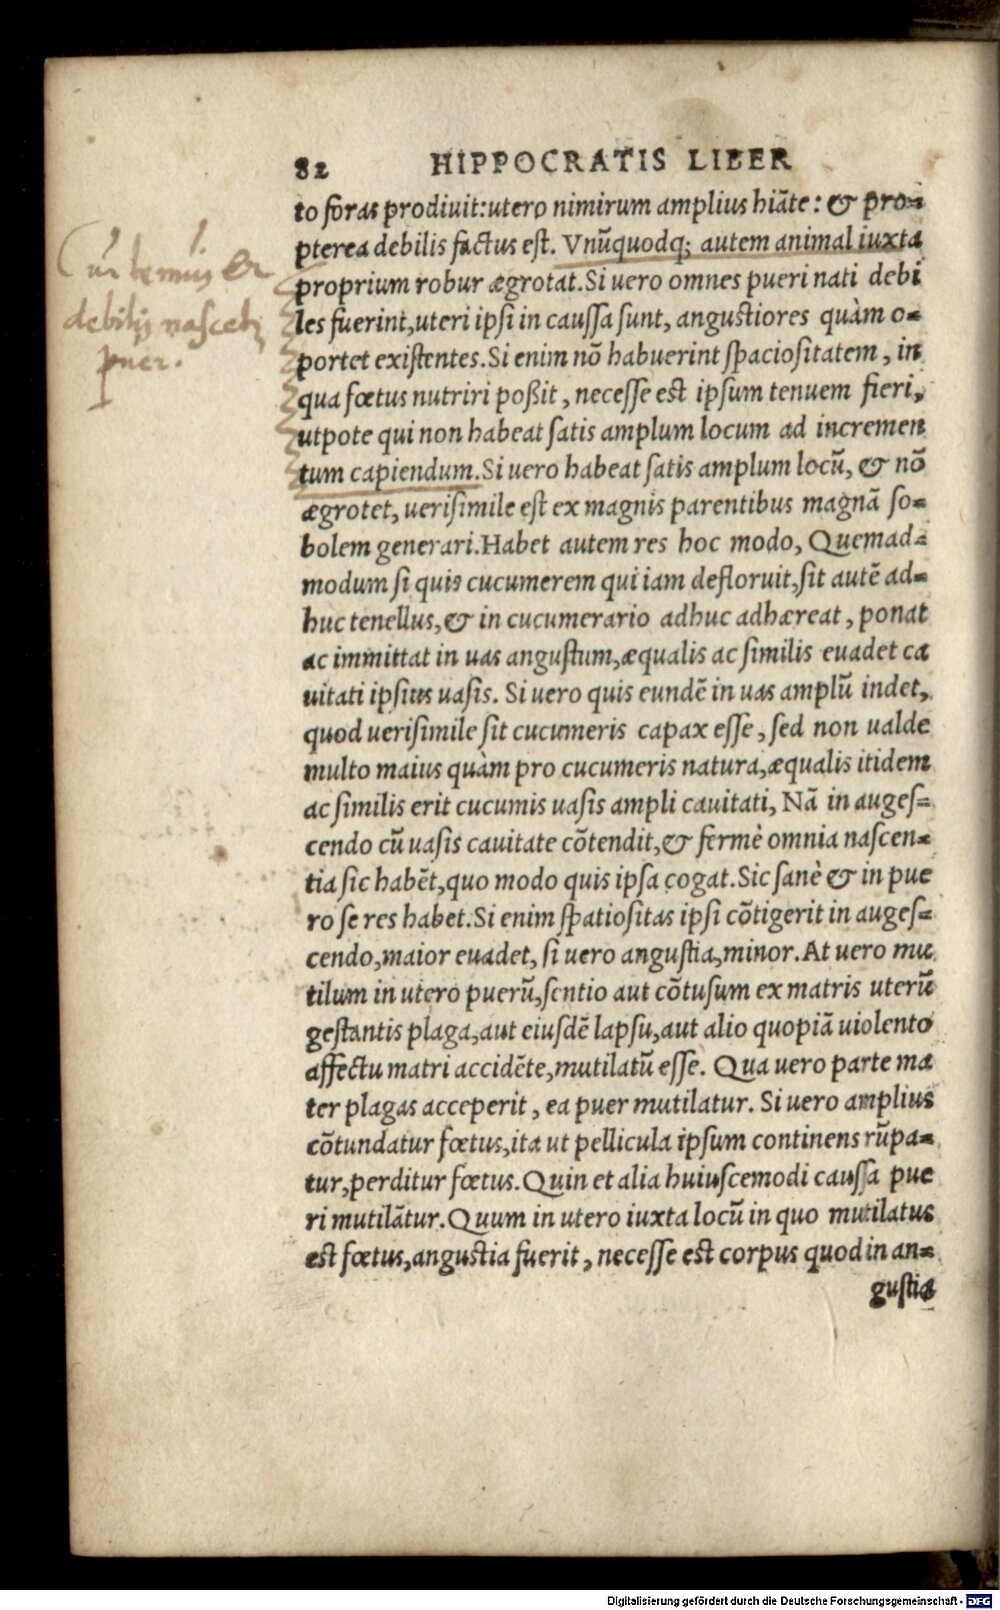 82 HIPPOCRATIS LIBER
to foras prodiuit:utero nimirum amplius hiāte: & pro=
pterea debilis factus est. Vnūquodq; autem animal iuxta
proprium robur ægrotat.Si uero omnes pueri nati debi
les fuerint,uteri ipsi in caussa sunt, angustiores quàm o=
portet existentes.Si enim nō habuerint spaciositatem, in
qua fœtus nutriri poßit, necesse est ipsum tenuem fieri,
utpote qui non habeat satis amplum locum ad incremen
tum capiendum.Si uero habeat satis amplum locū, & nō
ægrotet, uerisimile est ex magnis parentibus magnā so=
bolem generari.Habet autem res hoc modo, Quemad=
modum si quis cucumerem qui iam defloruit,sit autē ad=
huc tenellus,& in cucumerario adhuc adhæreat, ponat
ac immittat in uas angustum,æqualis ac similis euadet ca
uitati ipsius uasis. Si uero quis eundē in uas amplū indet,
quod uerisimile sit cucumeris capax esse, sed non ualde
multo maius quàm pro cucumeris natura,æqualis itidem
ac similis erit cucumis uasis ampli cauitati, Nā in auges=
cendo cū uasis cauitate cōtendit,& fermè omnia nascen=
tia sic habēt,quo modo quis ipsa cogat.Sic sanè & in pue
ro se res habet.Si enim spatiositas ipsi cōtigerit in auges=
cendo,maior euadet, si uero angustia,minor.At uero mu
tilum in utero puerū,sentio aut cōtusum ex matris uterū
gestantis plaga,aut eiusdē lapsu,aut alio quopiā uiolento
affectu matri accidēte,mutilatū esse. Qua uero parte ma
ter plagas acceperit, ea puer mutilatur. Si uero amplius
cōtundatur fœtus,ita ut pellicula ipsum continens rūpa=
tur,perditur fœtus.Quin et alia huiuscemodi caussa pue
ri mutilātur.Quum in utero iuxta locū in quo mutilatus
est fœtus,angustia fuerit, necesse est corpus quod in an=
gustia
Cur tenuis et
debilis nascetr
puer.
Digitalisierung gefördert durch die Deutsche Forschungsgemeinschaft - DFG